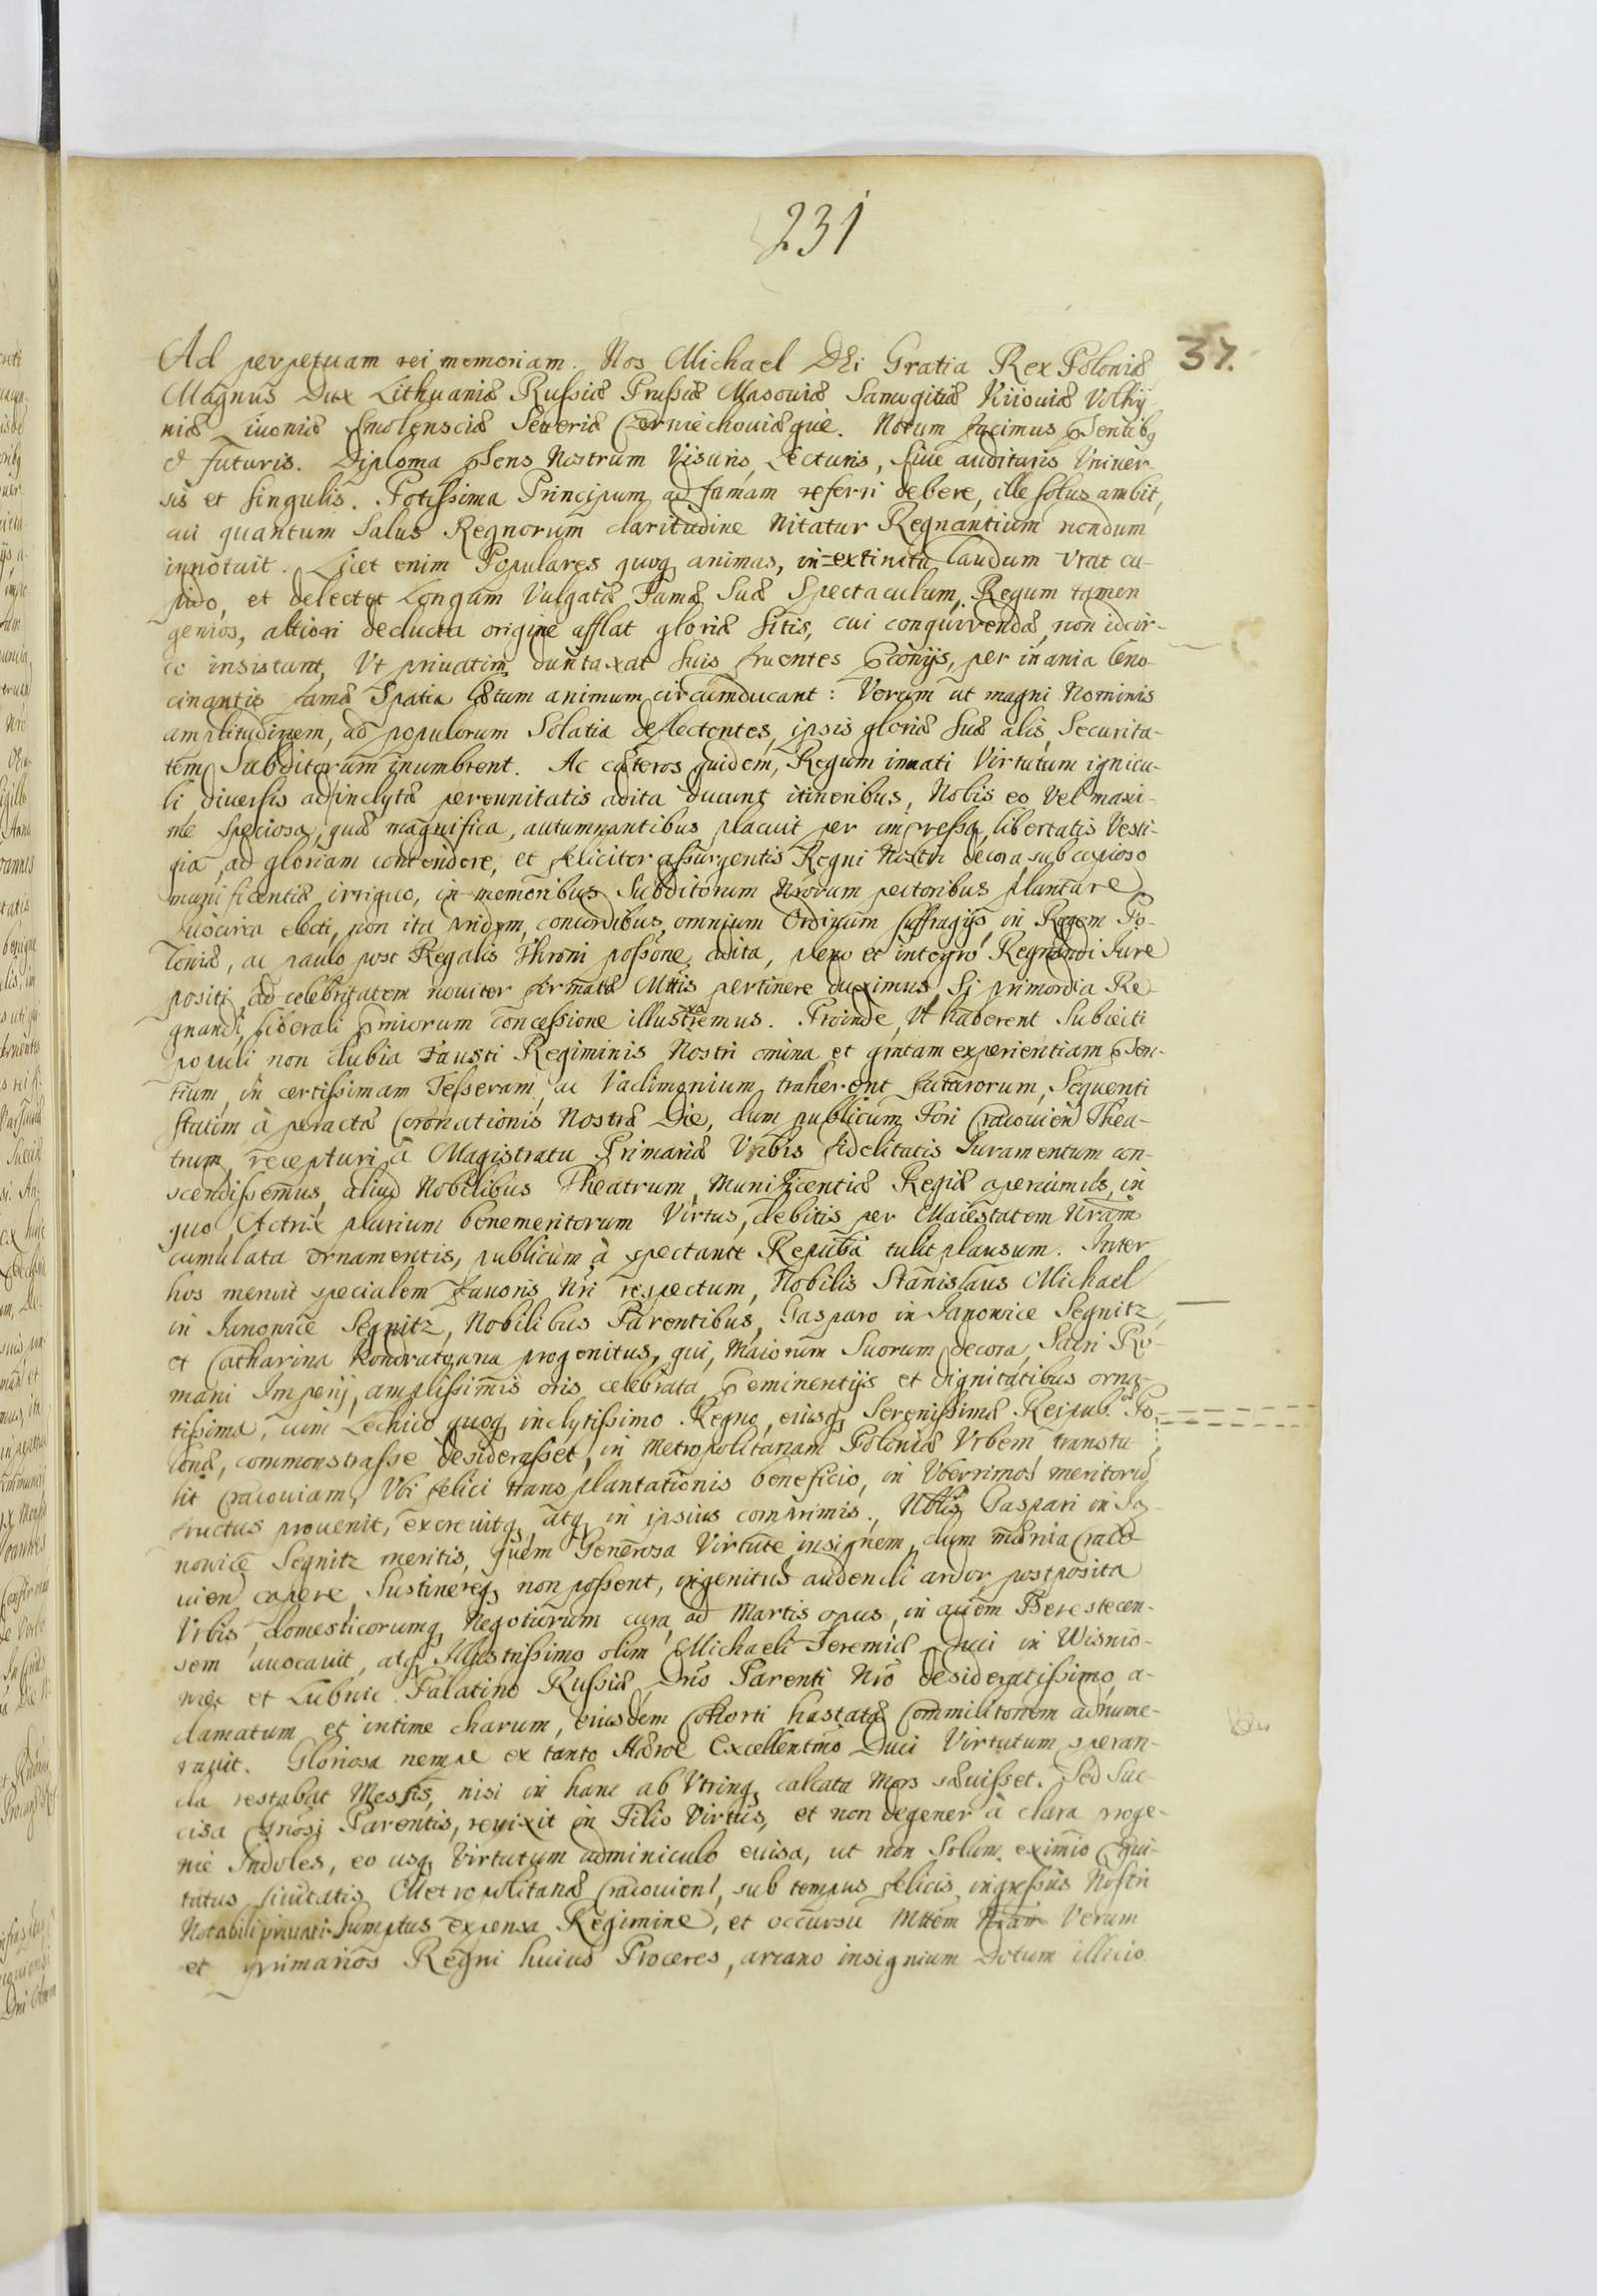 231
37.
Ad perpetuam rei memoriam. Nos Michael Dei Gratia Rex Poloniæ
Magnus Dux Lithuaniæ Russiæ Prussiæ Masouiæ Samogitiæ Kiiouiæ Volhy-
niæ Liuoniæ Smolensciæ Seueriæ Czerniechouiæque. Notum facimus psentibq
et futuris. Diploma psens Nostrum Visuris, Lecturis, siue audituris Vniuer-
sis et singulis. Potissima Principum ad famam referri debere, ille solus ambit,
cui quantum Salus Regnorum claritudine Nitatur Regnantium nondum
innotuit. Licet enim Populares quoq animas, in=extincta laudum Vrat cu-
pido, et delectet Longum Vulgatæ Famæ Suæ Spectaculum, Regum tamen
genios, altiori deducta origine afflat gloriæ sitis, cui conquirendæ non idcir-
co insistunt, Vt priuatim duntaxat suis fruentes pconijs, per inania leno-
cinantis famæ Spatia lætum animum circumducant: Verum ut magni Nominis
amplitudinem, ad populorum Solatia deflectentes, ipsis gloriæ suæ alis, Securita-
tem Subditorum inumbrent. Ac cæteros quidem, Regum innati Virtutum ignicu-
li diuersis ad inclytæ perennitatis adita ducunt itineribus, Nobis eo Vel maxi-
me speciosa, quæ magnifica, autumnantibus placuit per impressa libertatis Vesti-
gia, ad gloriam contendere, et feliciter assurgentis Regni Nostri decora, sub copioso
munificentiæ irriguo, in memoribus Subditorum Nrorum pectoribus plantare
Quocirca electi, non ita pridem, concordibus omnium Ordinum suffragijs in Regem Po-
loniæ, ac paulo post Regalis Throni possone adita, pleno et integro Regnandi Iure
positi, ad celebritatem nouiter firmatæ Mttis pertinere duximus, Si primordia Re-
gnandi, liberali pmiorum concessione illustraremus. Proinde, Vt haberent Subiecti
populi non dubia Fausti Regiminis Nostri omina et gratam experientiam psen-
tium, in certissimam Tesseram, ac Vadimonium traherent futurorum, Sequenti
statim à peracta Coronationis Nostræ Die, dum publicum Fori Cracouien Thea-
trum, recepturi à Magistratu Primariæ Vrbis fidelitatis Iuramentum con-
scendissemus, aliud Nobilibus Theatrum, Munificentiæ Regiæ aperuimus, in
quo, Actrix plurium benemeritorum Virtus, debitis per Maiestatem Nram
cumulata ornamentis, publicum à spectante Repuba tulit plausum. Inter
hos meruit specialem fauoris Nri respectum, Nobilis Stanislaus Michael
in Janowice Segnitz, Nobilibus Parentibus, Gasparo in Janowice Segnitz,
et Catharina progenitus, qui, Maiorum Suorum decora, Sacri Ro-
mani Imperij, amplissimis oris celebrata, peminentijs et dignitatibus orna-
tissima, cum Lechico quoq inclytissimo Regno, eiusq Serenissimæ Reipub. Po-
lonæ, commonstrasse desiderasset, in Metropolitanam Poloniæ Vrbem transtu-
lit Cracouiam, Vbi felici transplantationis beneficio, in Vberrimos meritorũ
fructus prouenit, excreuitq, atq in ipsius comprimis, Nblis Caspari in Ja-
nowice Segnitz meritis, quem Generosa Virtute insignem, dum mænia Craco-
uien capere, Sustinereq non possent, ingenitus audendi ardor, postposita
Vrbis, domesticorumq Negotiorum cura, ad Martis opus, in aciem Berestecen-
sem auocauit, atq Illustrissimo olim Michaeli Jeremiæ Duci in Wisnio-
wiec et Lubnie Palatino Russiæ, Dno Parenti Nro desideratissimo, a-
damatum et intime charum, eiusdem Cohorti hastatæ Commilitonem adnume-
rauit. Gloriosa nempe ex tanto Heroe Excellentmo Duci Virtutum speran-
da restabat Messis, nisi in hanc ab Vtrinq calcata Mors sæuisset. Sed Suc-
cisa Gnosi Parentis, reuixit in Filio Virtus, et non degener à clara proge-
nie Indoles, eo usq Virtutum adminiculo euisa, ut non Solum eximio Equi-
tatus Ciuitatis Metropolitanæ Cracouien, sub tempus felicis ingressus Nostri
Notabili priuati Sumptus expensa Regimine, et occursu Mttem Nram Verum
et primarios Regni huius Proceres, arcano insignium Dotum illicio